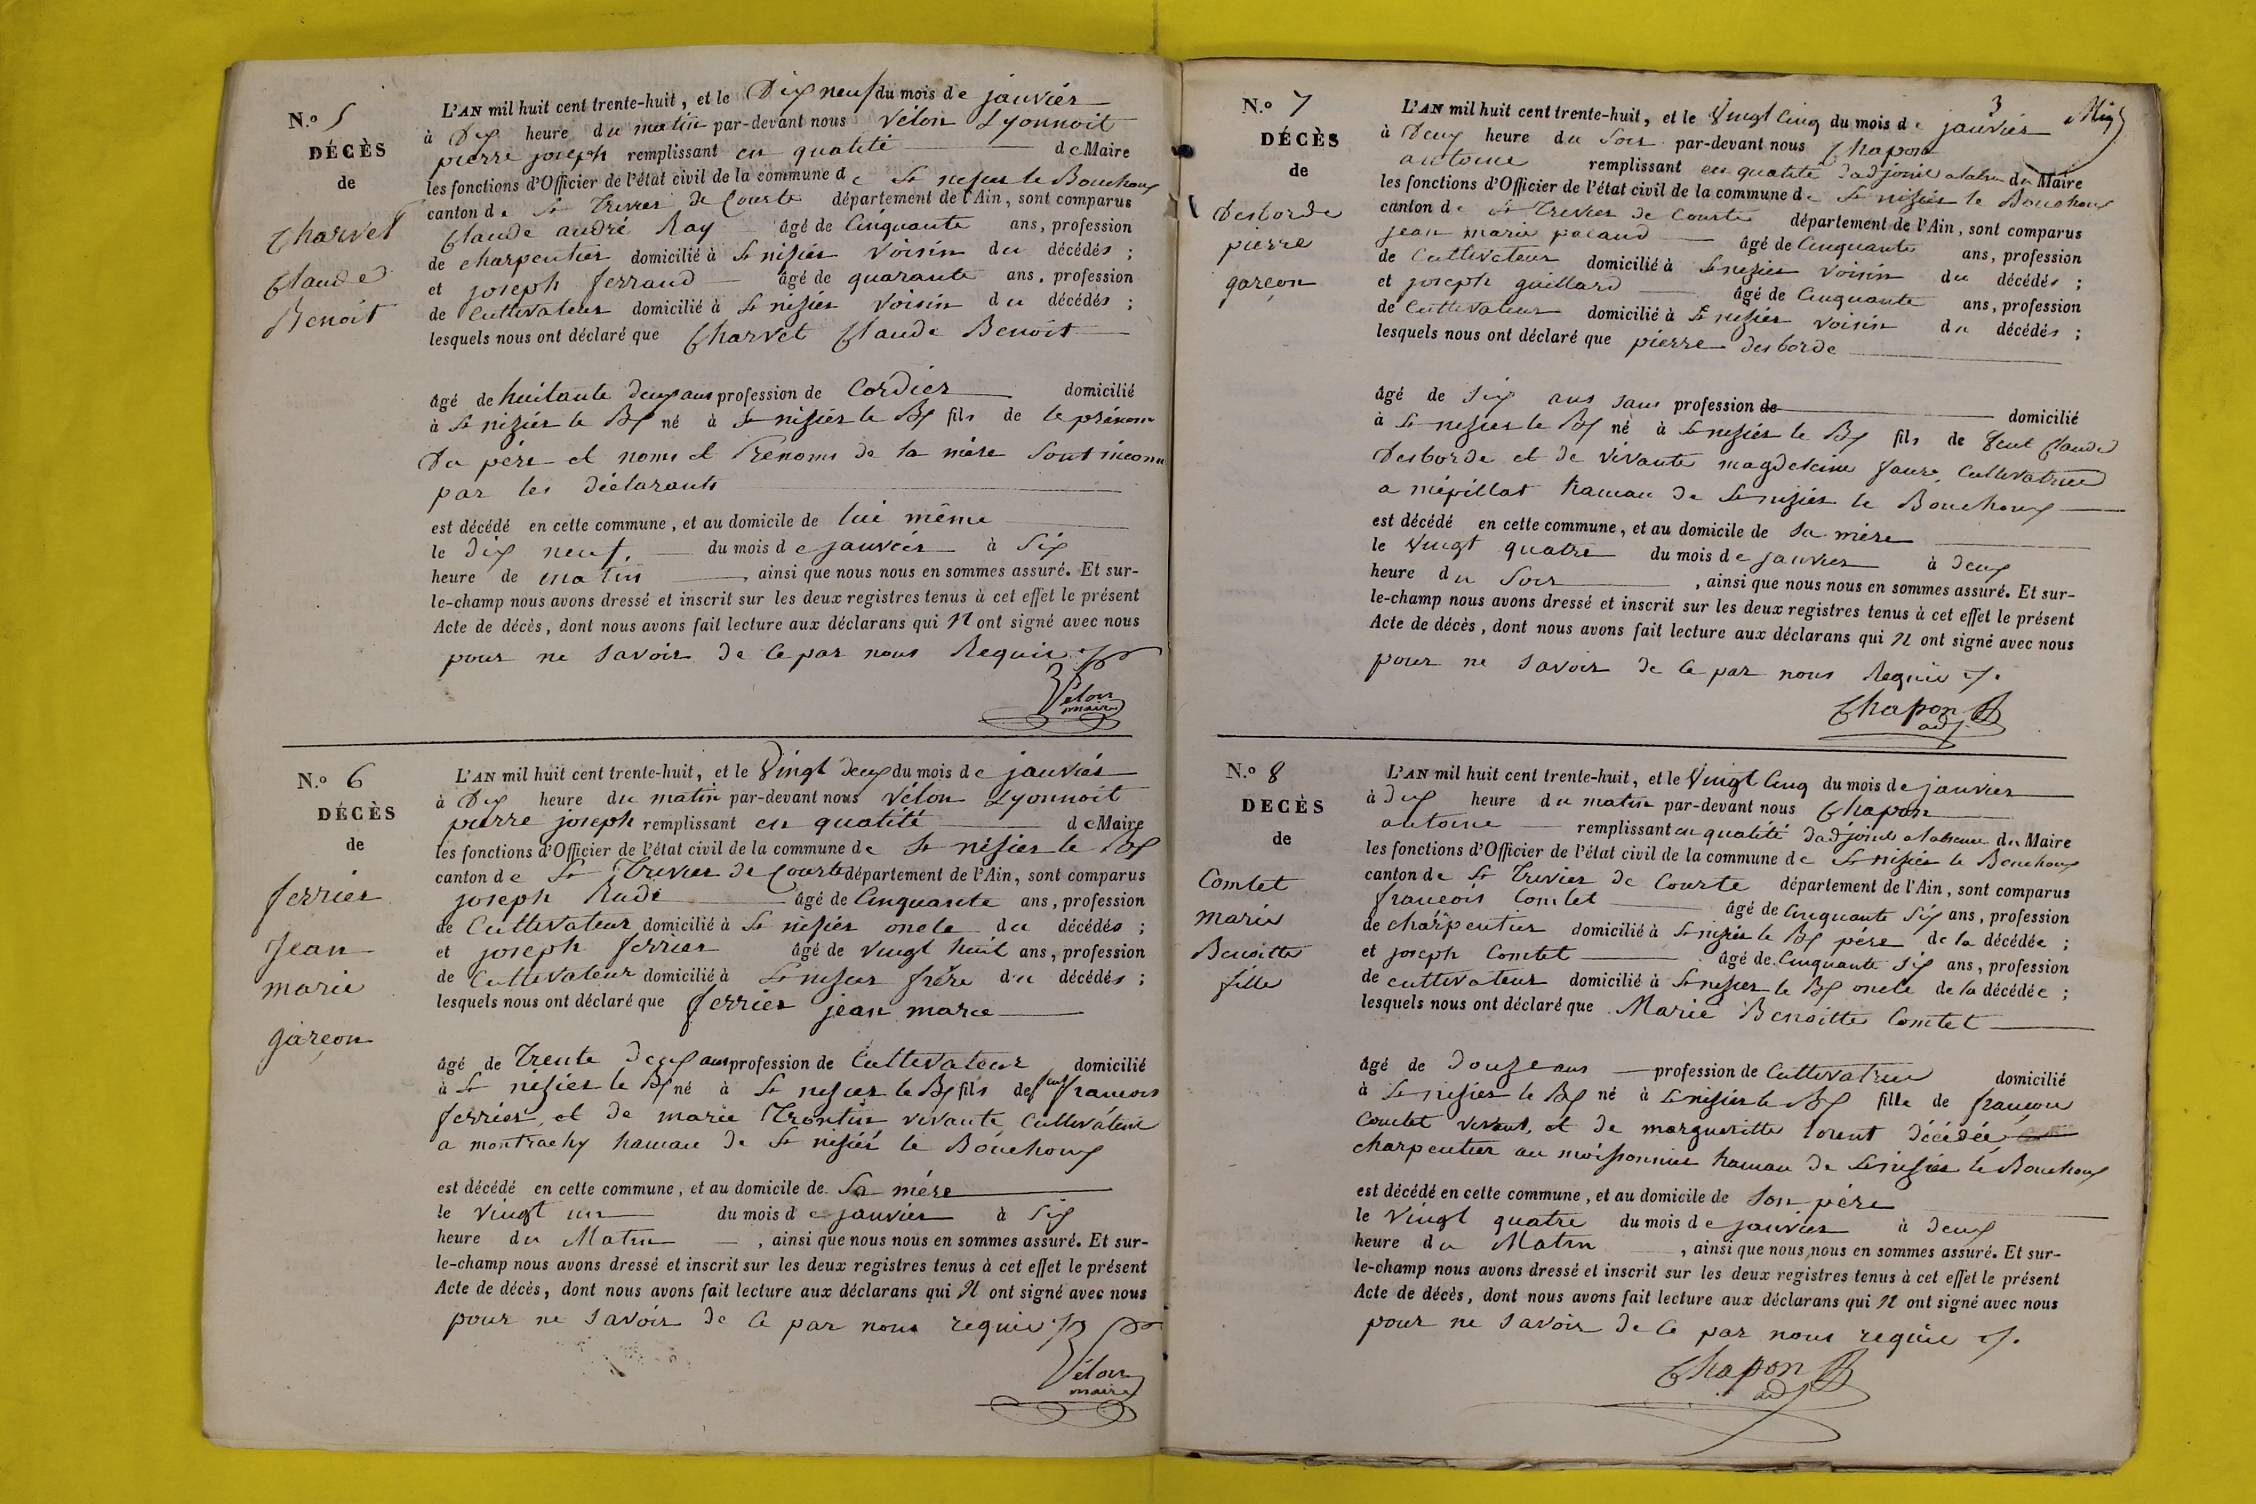 N.o 5
DÉCÈS
de
Charvet
Claude
Benoit
L'AN mil huit cent trente-huit, et le Dix neuf du mois de janvier
à Dix heure du matin par-devant nous Vélon Lyonnoit
pierre joseph remplissant en qualité de Maire
les fonctions d'Officier de l'état civil de la commune de St nisier le Bouchoux
canton de St Trivier de Courte département de l'Ain, sont comparus
Claude andré Ray âgé de Cinquante ans, profession
de charpentier domicilié à St nisier Voisin du décédés ;
et joseph ferrand âgé de quarante ans, profession
de Cultivateur domicilié à St nisier Voisin du décédés ;
lesquels nous ont déclaré que Charvet Claude Benoit
âgé de huitante deux ans profession de Cordier domicilié
à St nizier le Bx né à St nisier le Bx fils de le prénom
Du père et noms et Prénoms de la mère Sont inconnu
par les déclarants
est décédé en cette commune, et au domicile de lui même
le dix neuf du mois de janvier à Six
heure de matin, ainsi que nous nous en sommes assuré. Et sur-
le-champ nous avons dressé et inscrit sur les deux registres tenus à cet effet le présent
Acte de décès, dont nous avons fait lecture aux déclarans qui N ont signé avec nous
pour ne Savoir de Ce par nous Requis
Vélon
maire
N.o 6
DÉCÈS
de
ferrier
Jean
marie
garçon
L'AN mil huit cent trente-huit, et le Vingt deux du mois de janvier
à Dix heure du matin par-devant nous Vélon Lyonnoit
pierre joseph remplissant en qualité de Maire
les fonctions d'Officier de l'état civil de la commune de St nisier le Bx
canton de St Trivier de Courte département de l'Ain, sont comparus
joseph Rude âgé de Cinquante ans, profession
de Cultivateur domicilié à St nisier oncle du décédés ;
et joseph ferrier âgé de vingt huit ans, profession
de Cultivateur domicilié à St nisier frère du décédés ;
lesquels nous ont déclaré que ferrier jean marie
âgé de Trente deux ans profession de Cultivateur domicilié
à St nisier le Bx né à St nisier le Bx fils de feu francois
ferrier, et de marie Trontin vivante, Cultivatrice
a montrachy hameau de St nisier le Bouchoux
est décédé en cette commune, et au domicile de Sa mère
le vingt un du mois de janvier à Six
heure du Matin, ainsi que nous nous en sommes assuré. Et sur-
le-champ nous avons dressé et inscrit sur les deux registres tenus à cet effet le présent
Acte de décès, dont nous avons fait lecture aux déclarans qui N ont signé avec nous
pour ne Savoir de Ce par nous requis
Vélon
maire
3
N.o 7
DÉCÈS
de
Desborde
pierre
garçon
L'AN mil huit cent trente-huit, et le Vingt Cinq du mois de janvier
à Deux heure du Soir par-devant nous Chapon
antoine remplissant en qualité dadjoint du Maire
les fonctions d'Officier de l'état civil de la commune de St nisier le Bouchoux
canton de St Trivier de Courte département de l'Ain, sont comparus
jean marie pacaud âgé de Cinquante ans, profession
de Cultivateur domicilié à St nizier Voisin du décédés ;
et joseph guillard âgé de Cinquante ans, profession
de Cultivateur domicilié à St nizier voisin du décédés ;
lesquels nous ont déclaré que pierre desborde
âgé de Six ans sans profession de domicilié
à St nisier le Bx né à St nisier le Bx fils de feut Claude
Desborde et de vivante magdeleine faure, Cultivatrice
a mépillat hameau de St nizier le Bouchoux
est décédé en cette commune, et au domicile de Sa mère
le Vingt quatre du mois de janvier à deux
heure du Soir, ainsi que nous nous en sommes assuré. Et sur-
le-champ nous avons dressé et inscrit sur les deux registres tenus à cet effet le présent
Acte de décès, dont nous avons fait lecture aux déclarans qui N ont signé avec nous
pour ne Savoir de Ce par nous Requis
Chapon
adj.
N.o 8
DECÈS
de
Comtet
marie
Benoitte
fille
L'AN mil huit cent trente-huit, et le Vingt Cinq du mois de janvier
à dix heure du matin par-devant nous Chapon
antoine remplissant en qualité dadjoint du Maire
les fonctions d'Officier de l'état civil de la commune de St nisier le Bouchoux
canton de St Trivier de Courte département de l'Ain, sont comparus
francois Comtet âgé de Cinquante Six ans, profession
de charpentier domicilié à St nizier le Bx père de la décédée ;
et joseph Comtet âgé de Cinquante Six ans, profession
de cultivateur domicilié à St nisier le Bx oncle de la décédée ;
lesquels nous ont déclaré que Marie Benoitte Comtet
âgé de douze ans profession de Cultivatrice domicilié
à St nisier le Bx né à St nisier le Bx fille de françois
Comtet vivant, et de margueritte Lorent décédée
charpentier au moissonnier hameau de St nisier le Bouchoux
est décédé en cette commune, et au domicile de Son père
le Vingt quatre du mois de janvier à deux
heure du Matin, ainsi que nous nous en sommes assuré. Et sur-
le-champ nous avons dressé et inscrit sur les deux registres tenus à cet effet le présent
Acte de décès, dont nous avons fait lecture aux déclarans qui N ont signé avec nous
pour ne Savoir de Ce par nous requis
Chapon
adj